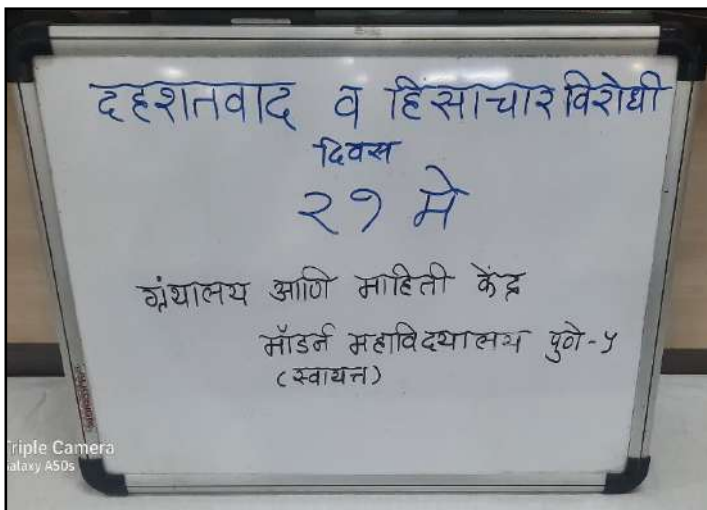 दहशतवाद व हिंसाचार विरोधी
दिवस
२१ मे
ग्रंथालय आणि माहिती केंद्र
मॉडर्न महाविदयालय पुणे-५
(स्वायत्त)
Triple Camera
Galaxy A50s